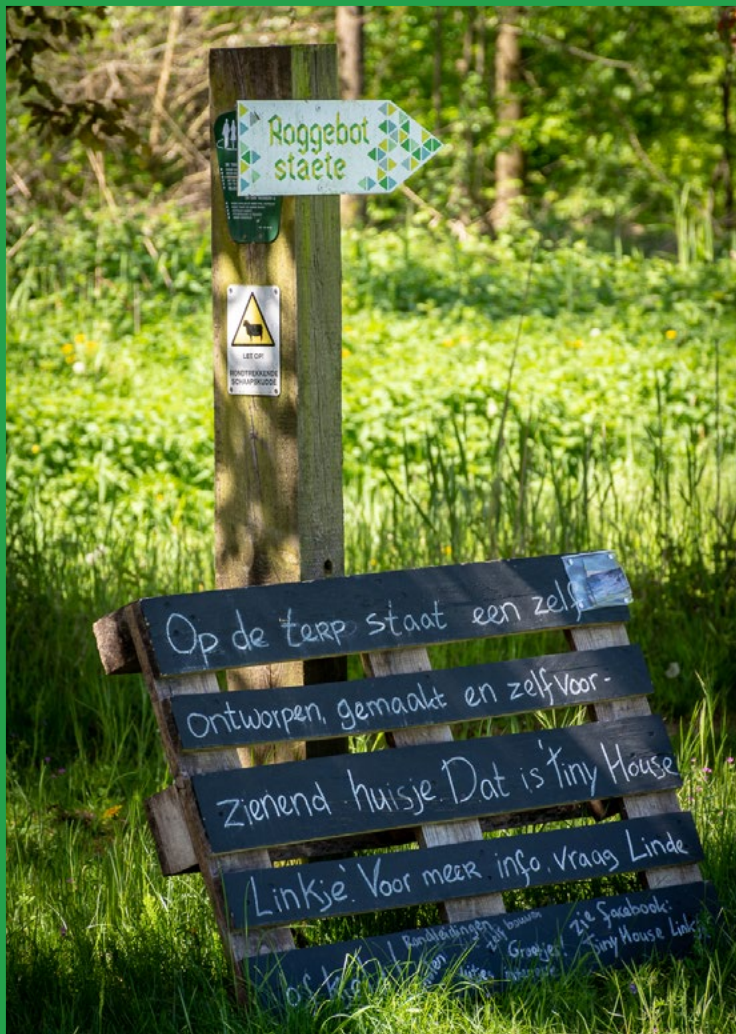 Roggebot
staete
LET OP!
RONDTREKKENDE
SCHAAPSKUDDE
Op de teRp staat een zelf
ontworpen, gemaakt en zelfvoor-
zienend huisje Dat is 'tiny House
Linkje'. Voor meer info, vraag Linde
Rondleidingen
zelf bouwen
Groetjes!
zie facebook:
Tiny House Linkje